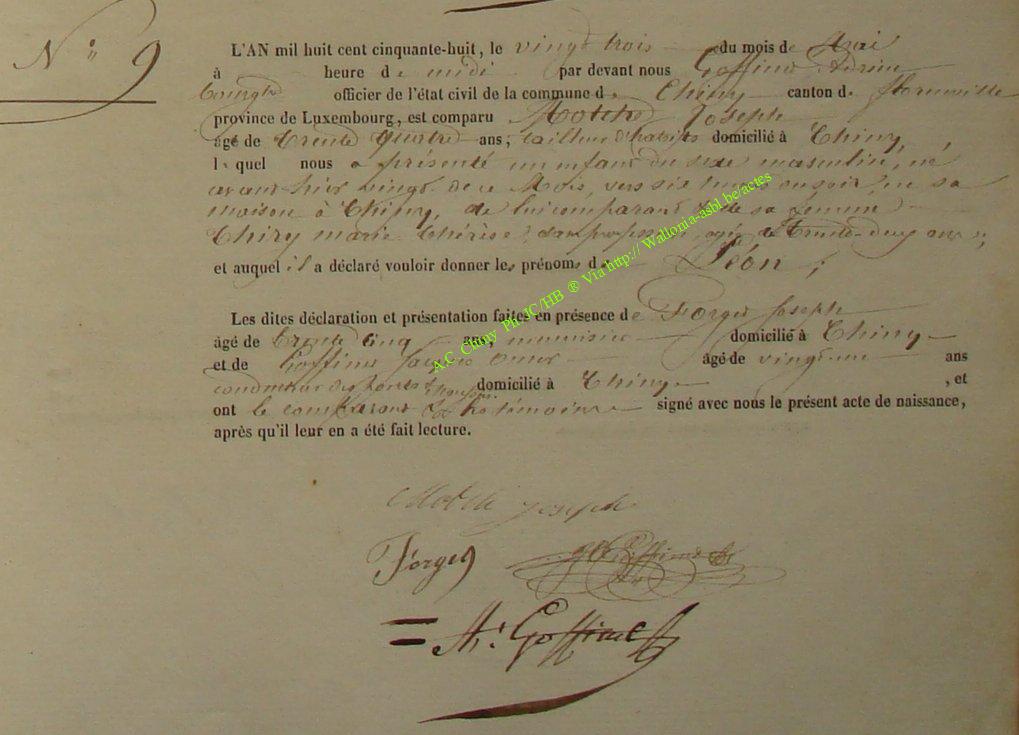 N° 9
L'AN mil huit cent cinquante-huit, le vingt trois du mois de Mai
à heure de midi par devant nous Goffinet Adrien
bourgtre officier de l'état civil de la commune de Chiny canton de florenville
province de Luxembourg, est comparu Motché Joseph
âgé de trente quatre ans, tailleur d'habits domicilié à Chiny,
lequel nous a présenté un enfant du sexe masculin, né
avant hier vingt de ce Mois, vers six heures du soir, en sa
maison à Chiny, de lui comparant et de sa femme
Thiry marie thérèse, sans profession, agée de trente deux ans,
et auquel il a déclaré vouloir donner les prénoms de Léon ;
Les dites déclaration et présentation faites en présence de Forget Joseph
âgé de trente cinq ans, menuisier domicilié à Chiny
et de Goffinet Jacques Omer âgé de vingt un ans
conducteur des ponts et chaussées domicilié à Chiny , et
ont le comparant et les témoins signé avec nous le présent acte de naissance,
après qu'il leur en a été fait lecture.
Joseph
Forget
Goffinet
Ad. Goffinet
A.C. Chiny Ph. JC/HB ® Via http:// Wallonia-asbl.be/actes